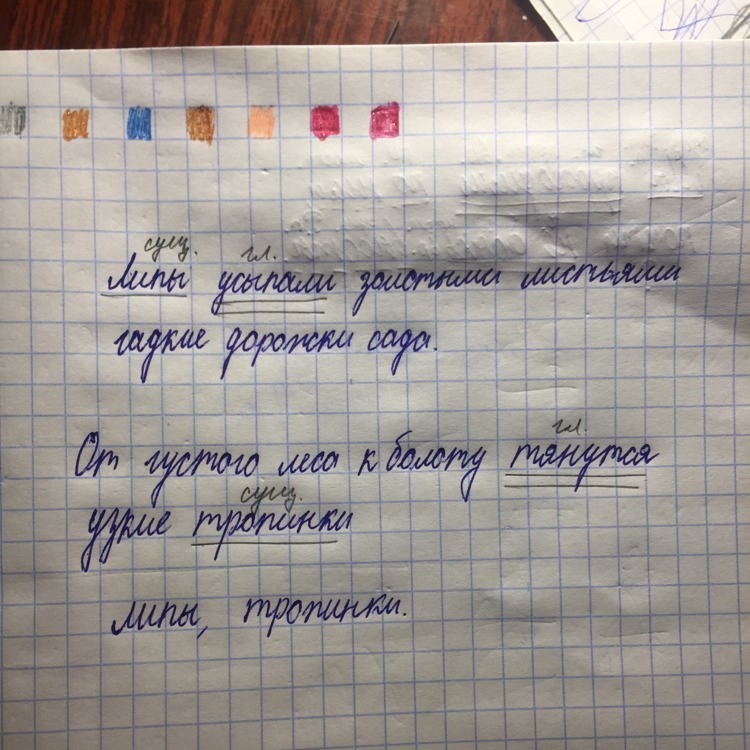 сущ. гл.
Липы усыпали золотыми листьями
гадкие дорожки сада.
гл.
От густого леса к болоту тянутся
сущ.
узкие тропинки
липы, тропинки.